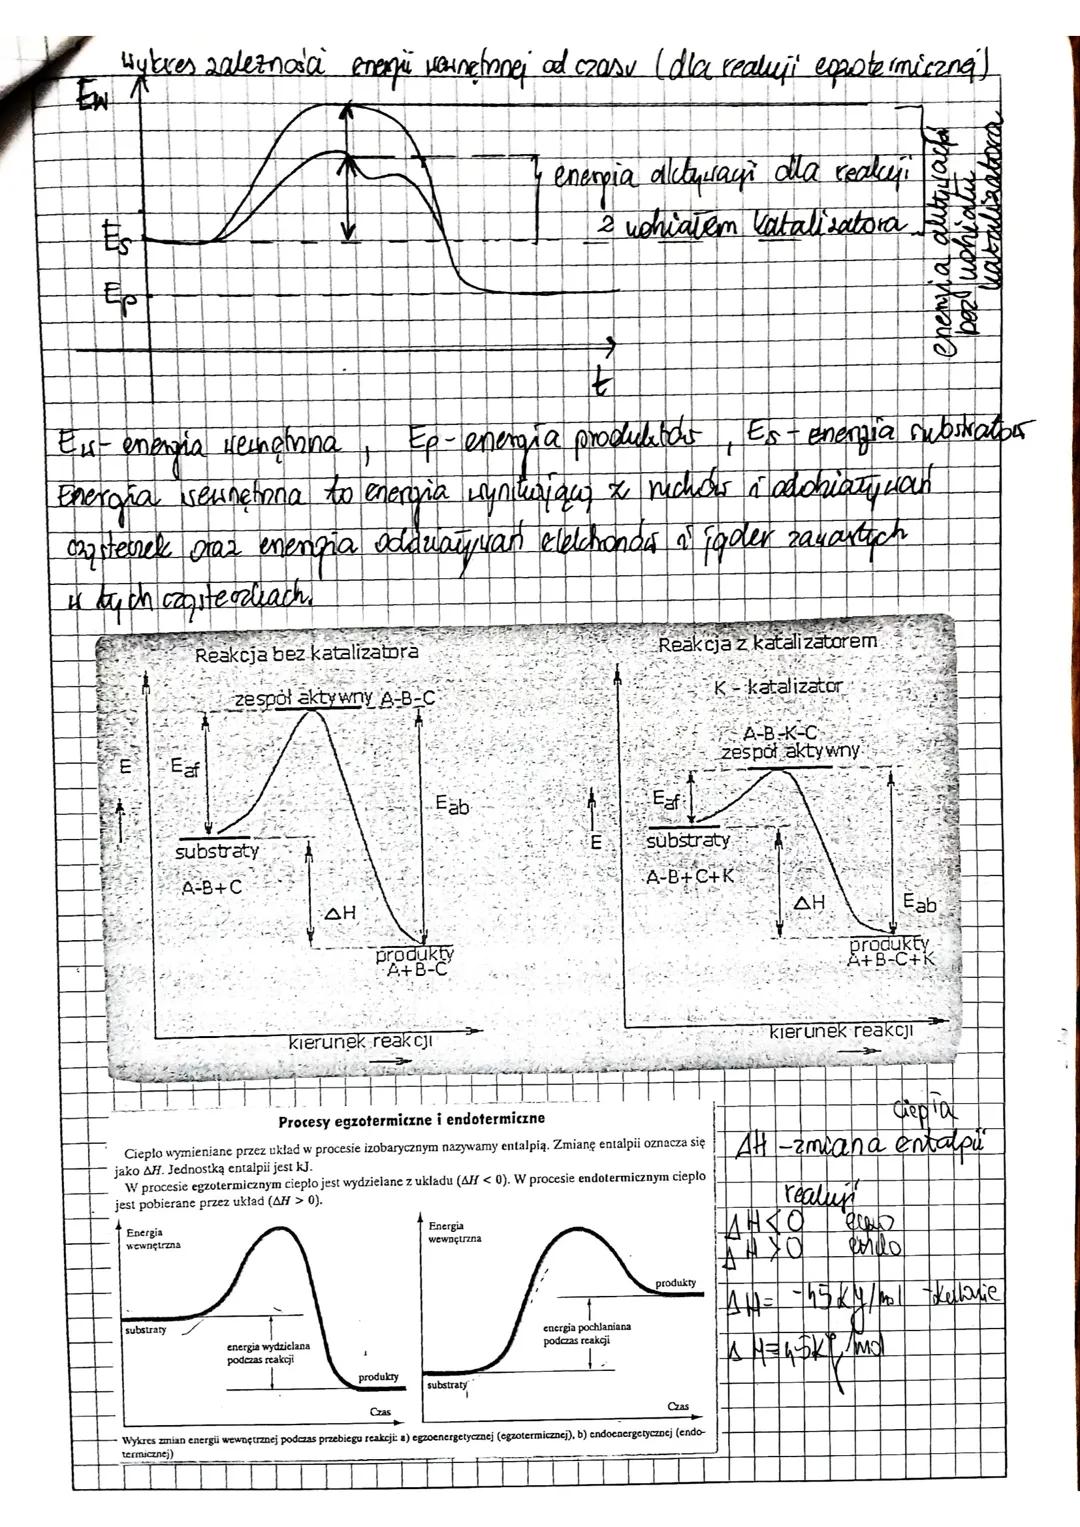 Wykres zależności energii wewnętrznej od czasu (dla reakcji egzotermicznej)
Ew
Es
Ep
t
energia aktywacji dla reakcji
z udziałem katalizatora
energia aktywacji
bez udziału
katalizatora
Ew - energia wewnętrzna , Ep - energia produktów , Es - energia substratów
Energia wewnętrzna to energia wynikająca z ruchów i oddziaływań
cząsteczek oraz energia oddziaływań elektronów i jąder zawartych
w tych cząsteczkach.
Reakcja bez katalizatora
zespół aktywny A-B-C
E
Eaf
Eab
substraty
A-B+C
ΔH
produkty
A+B-C
kierunek reakcji
Reakcja z katalizatorem
K - katalizator
A-B-K-C
zespół aktywny
E
Eaf
substraty
A-B+C+K
ΔH
Eab
produkty
A+B-C+K
kierunek reakcji
Procesy egzotermiczne i endotermiczne
Ciepło wymieniane przez układ w procesie izobarycznym nazywamy entalpią. Zmianę entalpii oznacza się
jako ΔH. Jednostką entalpii jest kJ.
W procesie egzotermicznym ciepło jest wydzielane z układu (ΔH < 0). W procesie endotermicznym ciepło
jest pobierane przez układ (ΔH > 0).
Energia
wewnętrzna
substraty
energia wydzielana
podczas reakcji
produkty
Czas
Energia
wewnętrzna
produkty
energia pochłaniana
podczas reakcji
substraty
Czas
Wykres zmian energii wewnętrznej podczas przebiegu reakcji: a) egzoenergetycznej (egzotermicznej), b) endoenergetycznej (endo-
termicznej)
ciepła
ΔH - zmiana entalpii
reakcji
ΔH < 0 egzo
ΔH > 0 endo
ΔH = -45 kJ/mol
ΔH = 45 kJ/mol